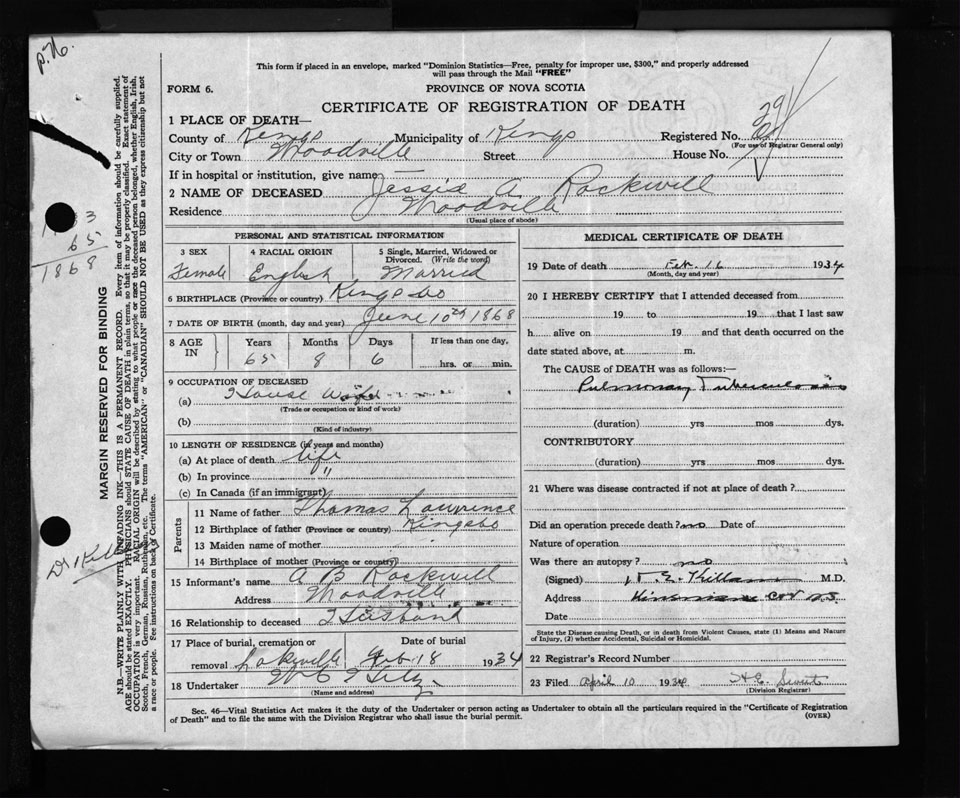 p. 76.
This form if placed in an envelope, marked "Dominion Statistics—Free, penalty for improper use, $300," and properly addressed
will pass through the Mail "FREE"
FORM 6.
PROVINCE OF NOVA SCOTIA
CERTIFICATE OF REGISTRATION OF DEATH
1 PLACE OF DEATH—
County of Kings Municipality of Kings Registered No.
(For use of Registrar General only)
City or Town Woodville Street House No.
If in hospital or institution, give name
2 NAME OF DECEASED Jessie A Rockwell
Residence Woodville
(Usual place of abode)
PERSONAL AND STATISTICAL INFORMATION
3 SEX Female
4 RACIAL ORIGIN English
5 Single, Married, Widowed or Divorced. (Write the word) Married
6 BIRTHPLACE (Province or country) Kings Co
7 DATE OF BIRTH (month, day and year) June 10th 1868
8 AGE IN Years 65 Months 8 Days 6 If less than one day, hrs. or min.
9 OCCUPATION OF DECEASED
(a) House Wife
(Trade or occupation or kind of work)
(b)
(Kind of industry)
10 LENGTH OF RESIDENCE (in years and months)
(a) At place of death life
(b) In province "
(c) In Canada (if an immigrant)
Parents
11 Name of father Thomas Lawrence
12 Birthplace of father (Province or country) Kings Co
13 Maiden name of mother
14 Birthplace of mother (Province or country)
15 Informant's name A B Rockwell
Address Woodville
16 Relationship to deceased Husband
17 Place of burial, cremation or removal Lakeville
Date of burial Feb 18 1934
18 Undertaker
(Name and address)
MEDICAL CERTIFICATE OF DEATH
19 Date of death Feb. 16 1934
(Month, day and year)
20 I HEREBY CERTIFY that I attended deceased from
19 to 19 that I last saw
h alive on 19 and that death occurred on
date stated above, at m.
The CAUSE of DEATH was as follows:—
Pulmonary Tuberculosis
(duration) yrs mos dys.
CONTRIBUTORY
(duration) yrs mos dys.
21 Where was disease contracted if not at place of death?
Did an operation precede death? no Date of
Nature of operation
Was there an autopsy? no
(Signed) Killam M.D.
Address N.S.
Date
State the Disease causing Death, or in death from Violent Causes, state (1) Means and Nature of Injury, (2) whether Accidental, Suicidal or Homicidal.
22 Registrar's Record Number
23 Filed April 10 1934
(Division Registrar)
Sec. 46—Vital Statistics Act makes it the duty of the Undertaker or person acting as Undertaker to obtain all the particulars required in the "Certificate of Registration
of Death" and to file the same with the Division Registrar who shall issue the burial permit.
(OVER)
MARGIN RESERVED FOR BINDING
N.B.—WRITE PLAINLY WITH UNFADING INK—THIS IS A PERMANENT RECORD. Every item of information should be carefully supplied.
AGE should be stated EXACTLY. PHYSICIANS should STATE CAUSE OF DEATH in plain terms, so that it may be properly classified. Exact statement of
OCCUPATION is very important. RACIAL ORIGIN will be described by stating to what people or race the deceased person belonged, whether English, Irish,
Scotch, French, German, Russian, Ruthenian, etc. The terms "AMERICAN" or "CANADIAN" SHOULD NOT BE USED as they express citizenship but not
a race or people. See instructions on back of Certificate.
3
65
1868